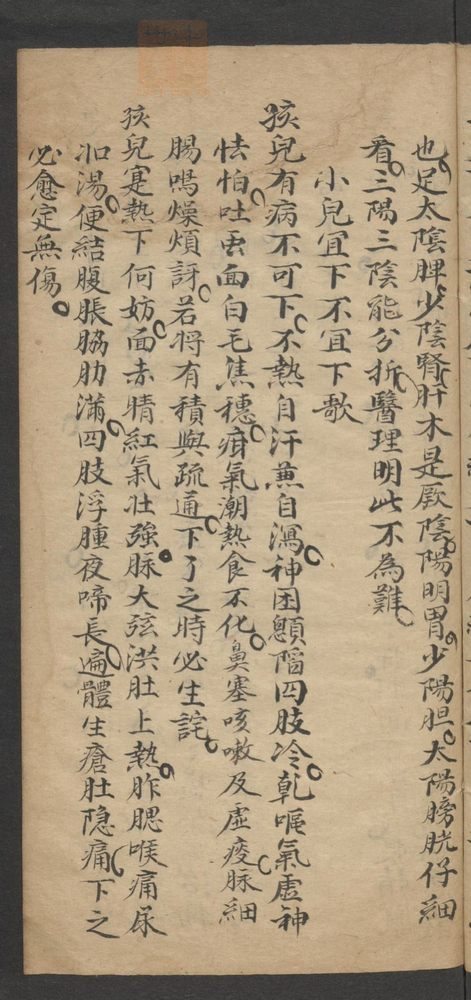 也足太陰脾少陰腎肝木是厥陰陽明胃少陽胆太陽膀胱仔細
看三陽三陰能分折醫理明此不為難
小兒宜下不宜下歌
孩兒有病不可下不熱自汗兼自瀉神困顖陷四肢冷乾嘔氣虛神
怯怕吐虫面白毛焦穗疳氣潮熱食不化鼻塞咳嗽及虛痰脉細
腸鳴燥煩訝若將有積與疏通下了之時必生詫
孩兒寔熱下何妨面赤睛紅氣壮強脉大弦洪肚上熱胙腮喉痛尿
如湯便結腹脹脇肋滿四肢浮腫夜啼長遍體生瘡肚隐痛下之
必愈定無傷